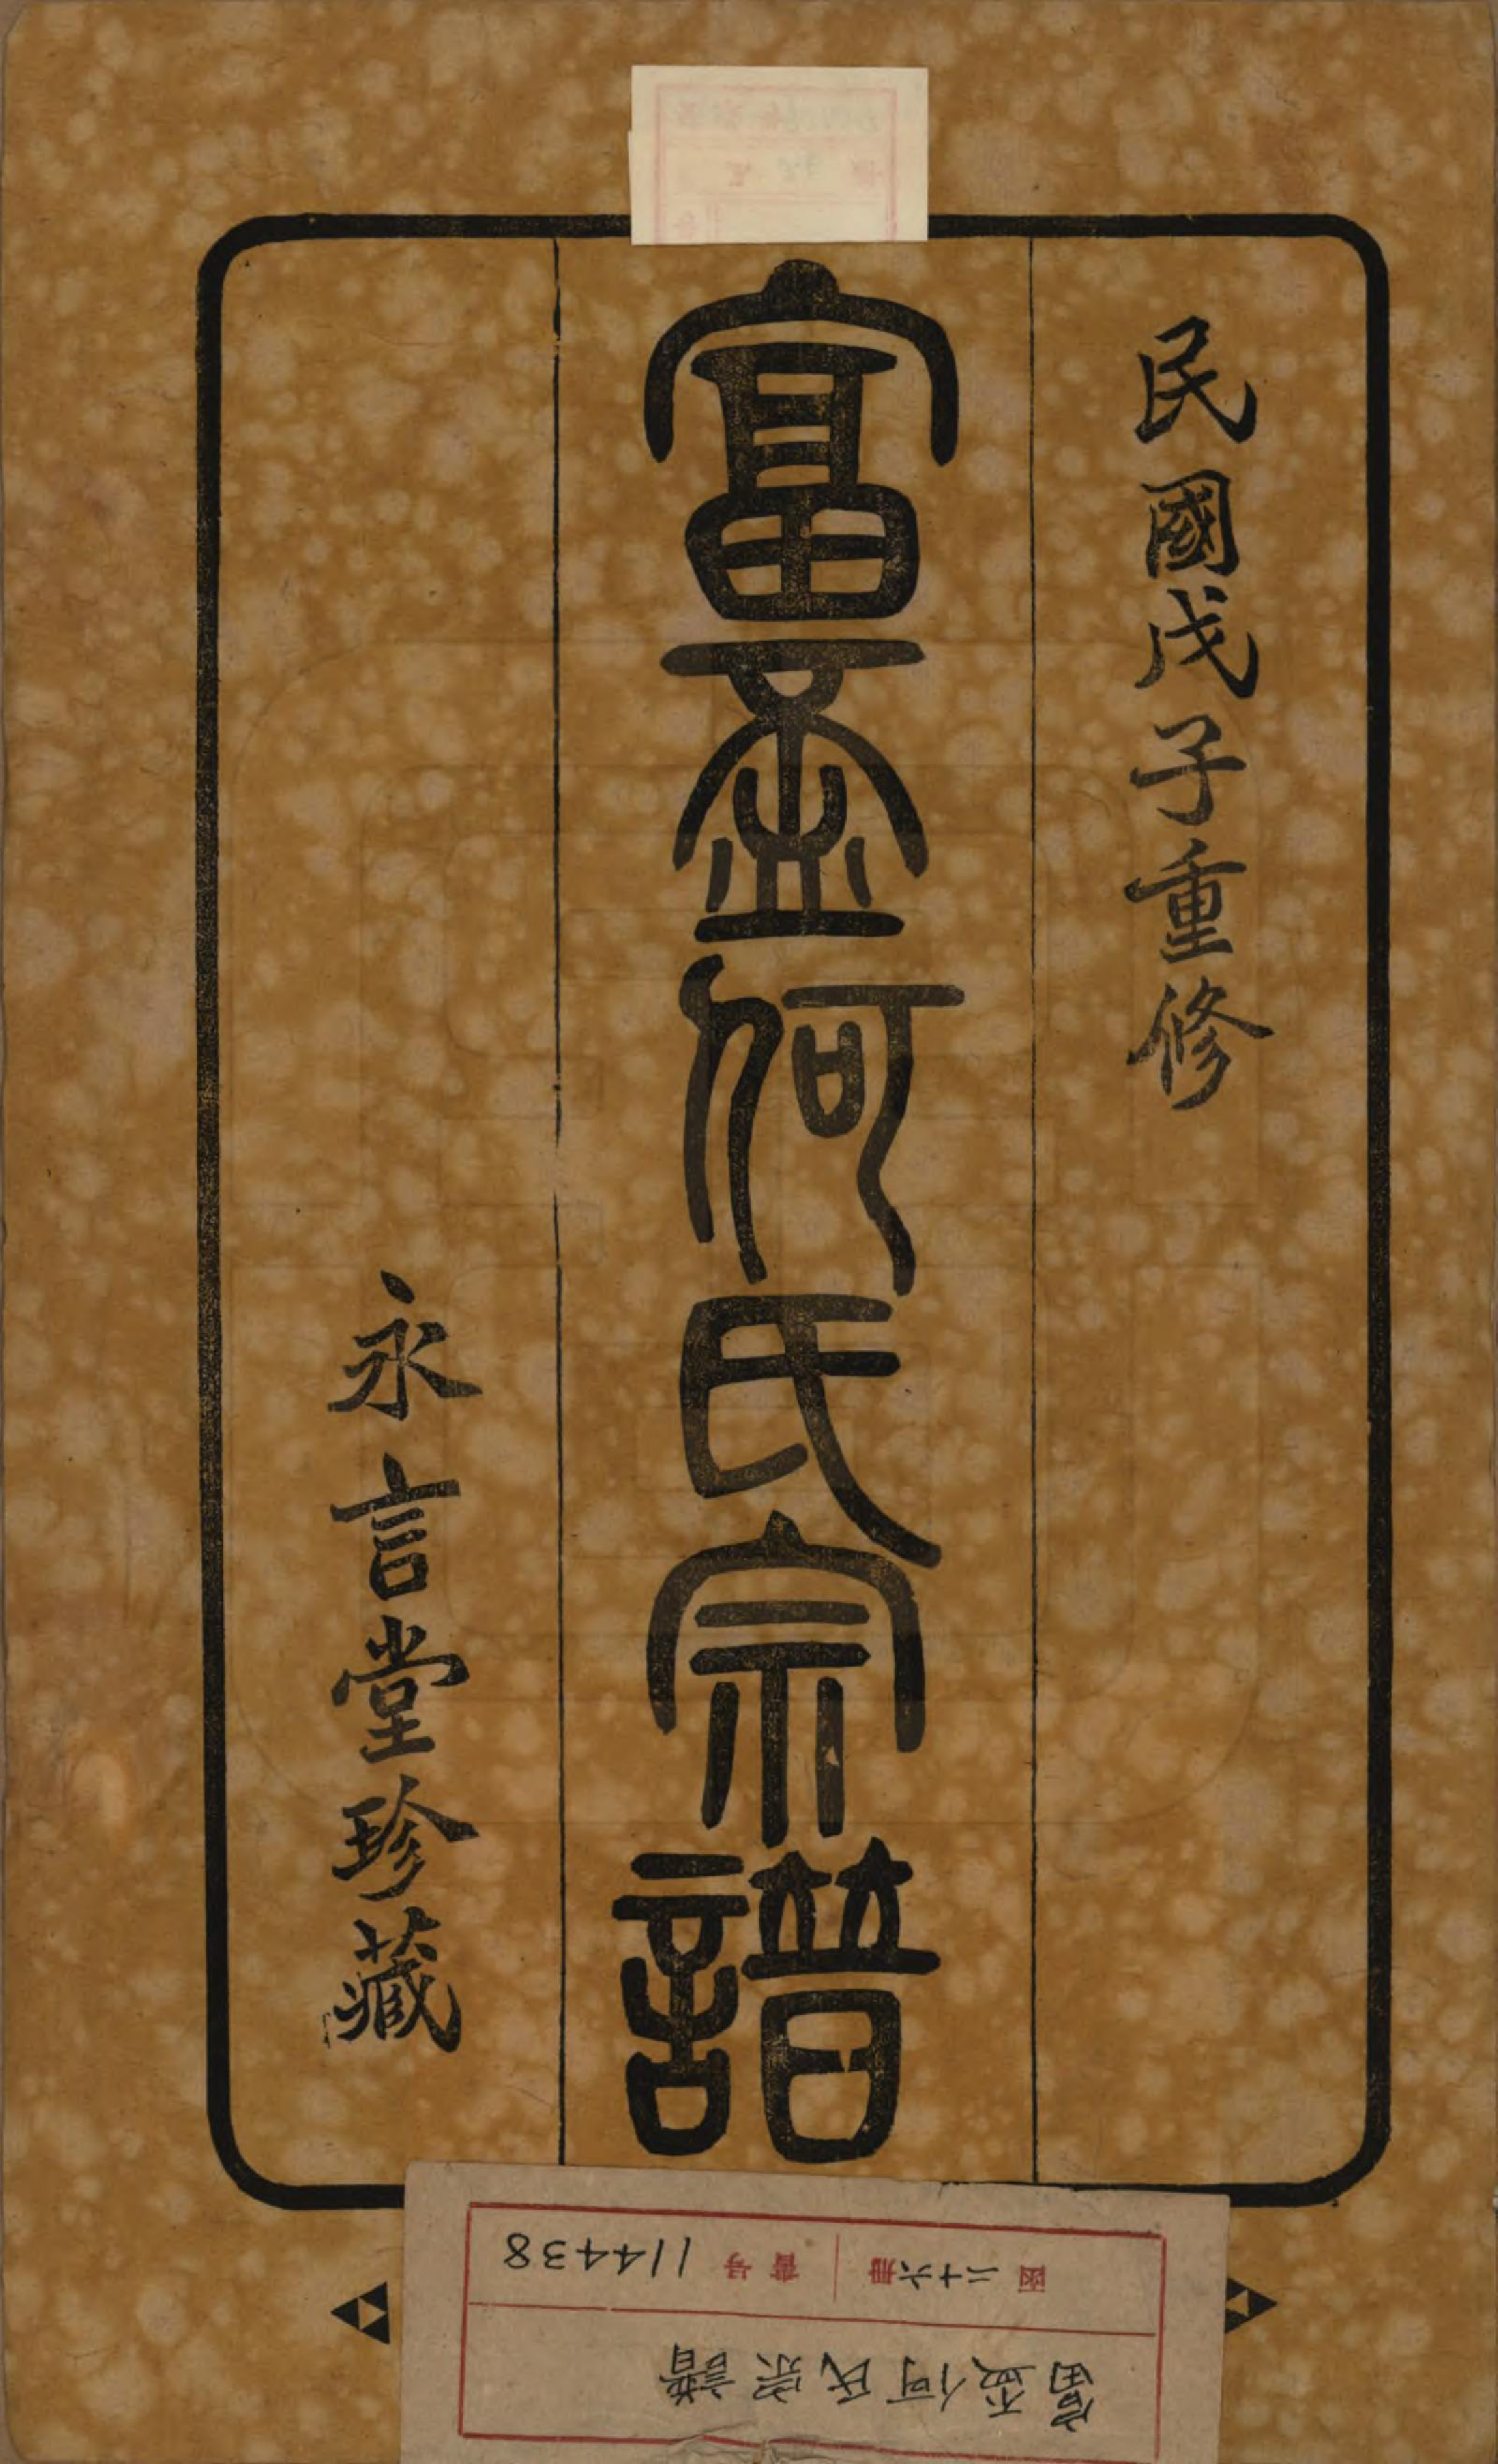 民國戊子重修
富盃何氏宗譜
永言堂珍藏
富盃何氏宗譜
函 二十六冊 書号 114438